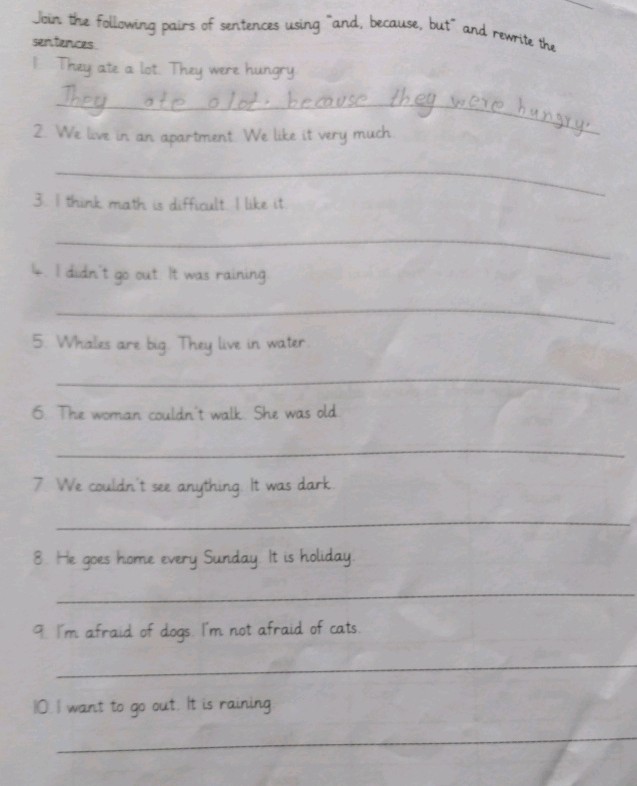 Join the following pairs of sentences using "and, because, but" and rewrite the
sentences.
1. They ate a lot. They were hungry.
They ate a lot. because they were hungry.
2. We live in an apartment. We like it very much.
3. I think math is difficult. I like it.
4. I didn't go out. It was raining.
5. Whales are big. They live in water.
6. The woman couldn't walk. She was old.
7. We couldn't see anything. It was dark.
8. He goes home every Sunday. It is holiday.
9. I'm afraid of dogs. I'm not afraid of cats.
10. I want to go out. It is raining.